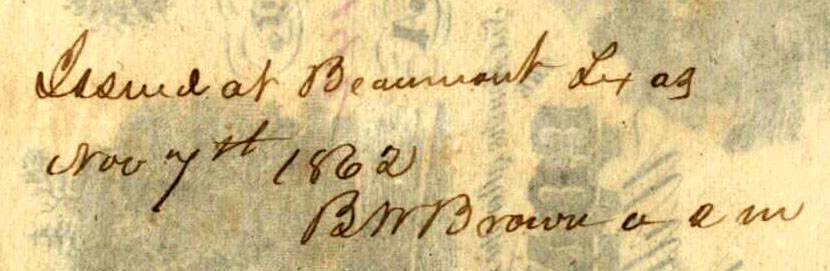 Issued at Beaumont Texas
Nov 7th 1862
B W Brown a a m